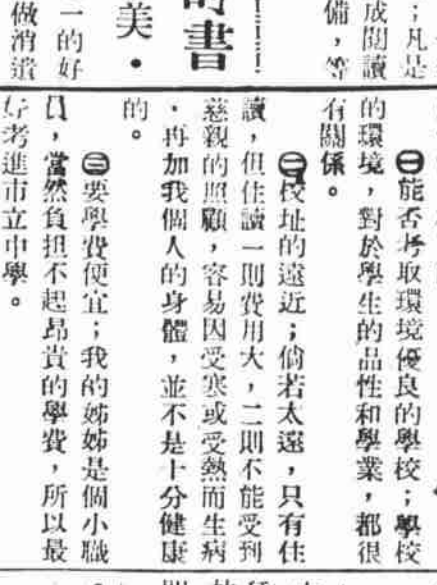 ；凡是
成閱讀
備，等
的書
美·
一的好
做消遣
㊀能否考取環境優良的學校；學校
的環境，對於學生的品性和學業，都很
有關係。
㊁校址的遠近；倘若太遠，只有住
讀，但住讀一則費用大，二則不能受到
慈親的照顧，容易因受寒或受熱而生病
，再加我個人的身體，並不是十分健康
的。
㊂要學費便宜；我的姊姊是個小職
員，當然負担不起昂貴的學費，所以最
好考進市立中學。